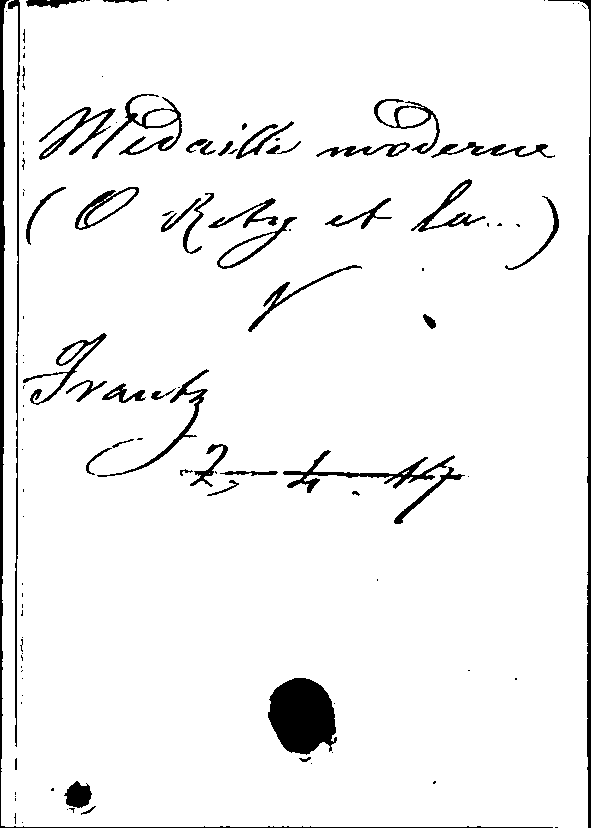 Médaille moderne
(O Retz et la...)
V
Frantz
Z, 4. 17